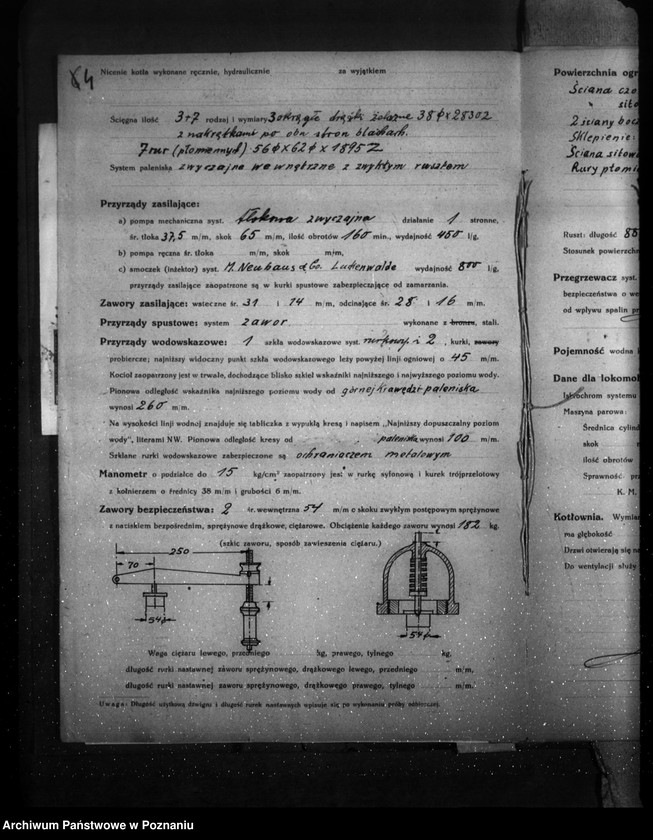 64
Nicenie kotła wykonane ręcznie, hydraulicznie za wyjątkiem
Ścięgna ilość 3+7 rodzaj i wymiary 3 okrągłe drążki żelazne 38 ϕ × 2830 z
z nakrętkami po obu stron blachach.
7 rur (płomiennych) 56 ϕ × 62 ϕ × 1895 z
System paleniska zwyczajne wewnętrzne z zwykłym rusztem
Przyrządy zasilające:
a) pompa mechaniczna syst. tłokowa zwyczajna działanie 1 stronne,
śr. tłoka 37,5 m/m, skok 65 m/m, ilość obrotów 160 min., wydajność 450 l/g,
b) pompa ręczna śr. tłoka m/m, skok m/m,
c) smoczek (inżektor) syst. M. Neuhaus & Co. Luckenwalde wydajność 800 l/g,
przyrządy zasilające zaopatrzone są w kurki spustowe zabezpieczające od zamarzania.
Zawory zasilające: wsteczne śr. 31 i 14 m/m, odcinające śr. 28 i 16 m/m.
Przyrządy spustowe: system zawór wykonane z bronzu, stali.
Przyrządy wodowskazowe: 1 szkła wodowskazowe syst. rurkowy i 2, kurki, zawory
probiercze; najniższy widoczny punkt szkła wodowskazowego leży powyżej linji ogniowej o 45 m/m.
Kocioł zaopatrzony jest w trwałe, dochodzące blisko szkieł wskaźniki najniższego i najwyższego poziomu wody.
Pionowa odległość wskaźnika najniższego poziomu wody od górnej krawędzi paleniska
wynosi 260 m/m.
Na wysokości linji wodnej znajduje się tabliczka z wypukłą kresą i napisem „Najniższy dopuszczalny poziom
wody", literami NW. Pionowa odległość kresy od paleniska wynosi 100 m/m.
Szklane rurki wodowskazowe zabezpieczone są ochraniaczem metalowym
Manometr o podziałce do 15 kg/cm² zaopatrzony jest w rurkę syfonową i kurek trójprzelotowy
z kołnierzem o średnicy 38 m/m i grubości 6 m/m.
Zawory bezpieczeństwa: 2 śr. wewnętrzna 54 m/m o skoku zwykłym postępowym sprężynowe
z naciskiem bezpośrednim, sprężynowe drążkowe, ciężarowe. Obciążenie każdego zaworu wynosi 182 kg.
(szkic zaworu, sposób zawieszenia ciężaru.)
250
70
54ϕ
54ϕ
Waga ciężaru lewego, przedniego kg, prawego, tylnego kg,
długość rurki nastawnej zaworu sprężynowego, drążkowego lewego, przedniego m/m,
długość rurki nastawnej zaworu sprężynowego, drążkowego prawego, tylnego m/m.
Uwaga: Długość użytkową dźwigni i długość rurek nastawnych wpisuje się po wykonaniu próby odbiorczej.
Powierzchnia ogr
Ściana czo
sito
2 ściany bocz
Sklepienie:
Ściana sitow
Rury płomi
Ruszt: długość 88
Stosunek powierzchn
Przegrzewacz syst.
bezpieczeństwa o we
od wpływu spalin pr
Pojemność wodna
Dane dla lokomob
Istochrom systemu
Maszyna parowa:
Średnica cylind
skok
ilość obrotów
Sprawność prz
K. M.
Kotłownia. Wymiar
ma głębokość
Drzwi otwierają się na
Do wentylacji służy
Archiwum Państwowe w Poznaniu